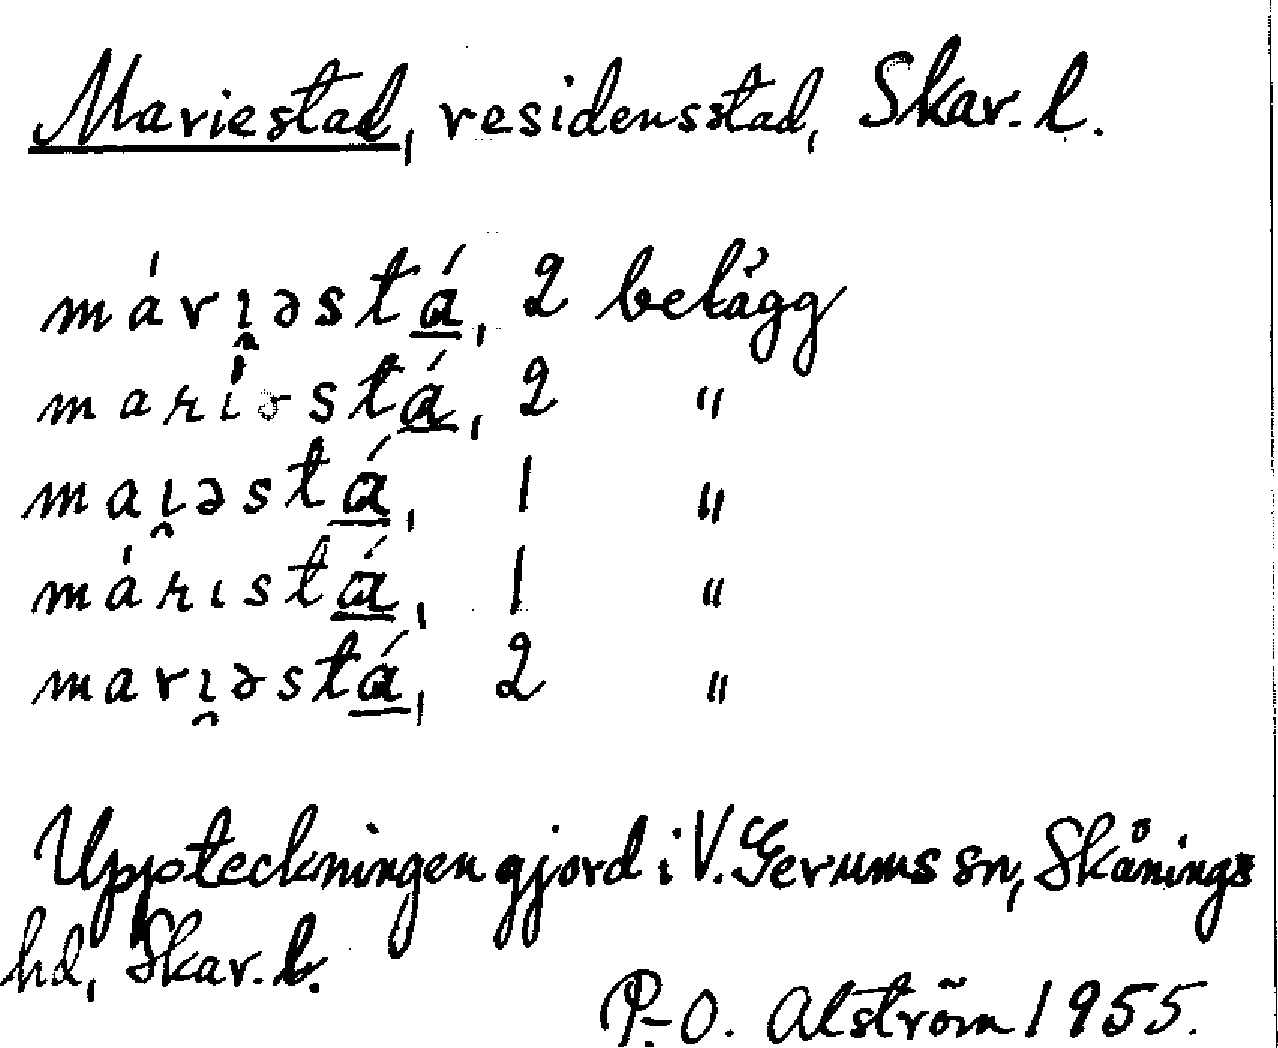 Mariestad, residensstad, Skar. l.
márı̯əstá̲, 2 belägg
maríəstá̲, 2 "
maı̯əstá̲, 1 "
márıstá̲, 1 "
marı̯əstá̲, 2 "
Uppteckningen gjord i V. Gerums sn, Skånings
hd, Skar. l.
P.-O. Alström 1955.